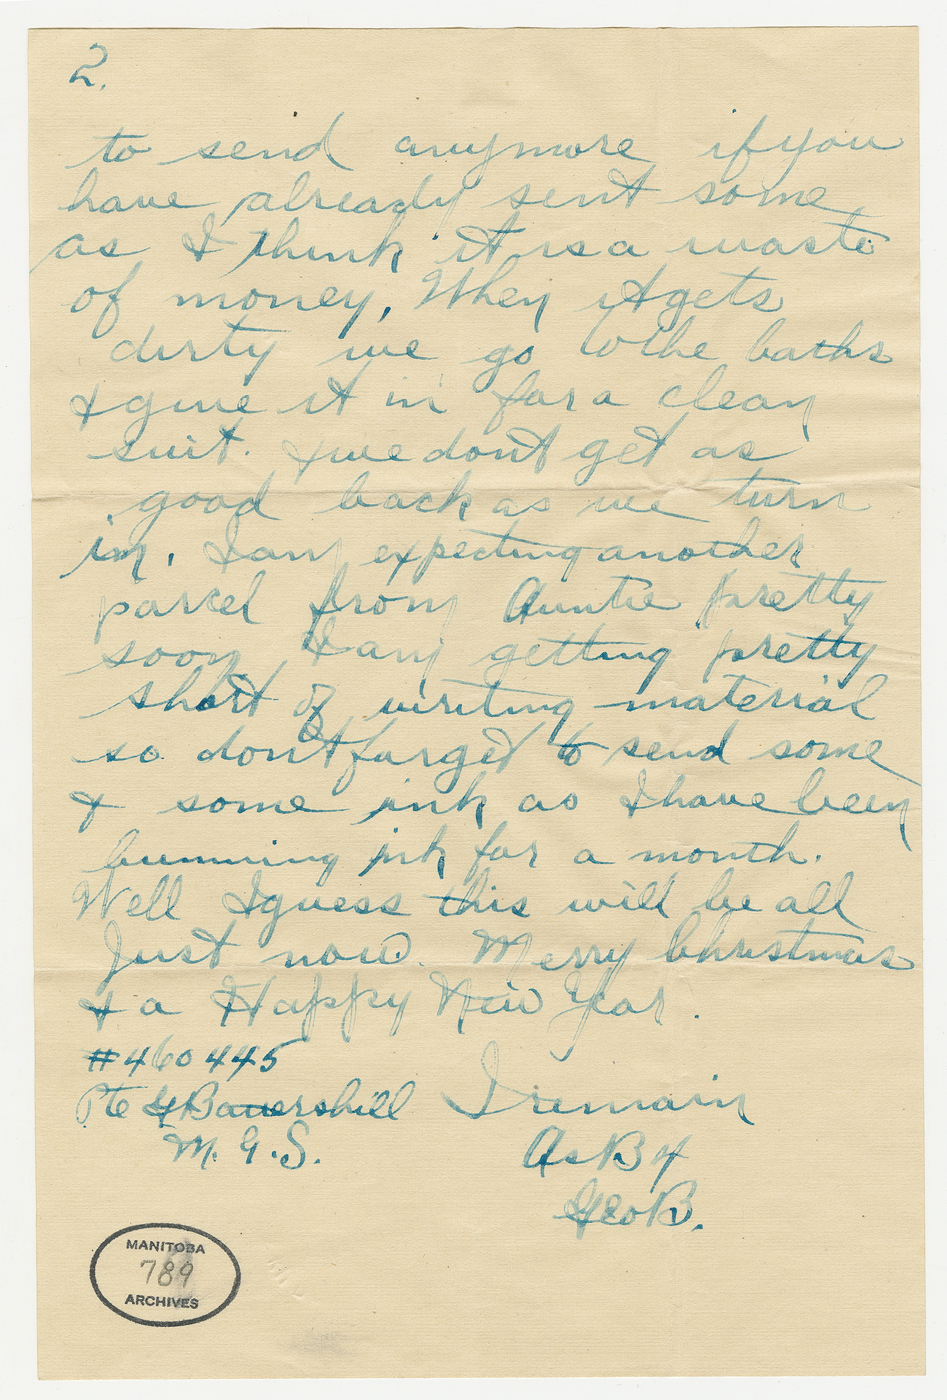 2.
to send anymore if you
have already sent some
as I think it is a waste
of money, When it gets
dirty we go to the baths
& give it in for a clean
suit. & we dont get as
good back as we turn
in. I am expecting another
parcel from Auntie pretty
soon, I am getting pretty
short of writing material
so don't forget to send some
& some ink as I have been
bumming ink for a month.
Well I guess this will be all
Just now. Merry Christmas
& a Happy New Year.
#460445
Pte G Battershill I remain
M.G.S. As B4
Geo B.
MANITOBA
789
ARCHIVES